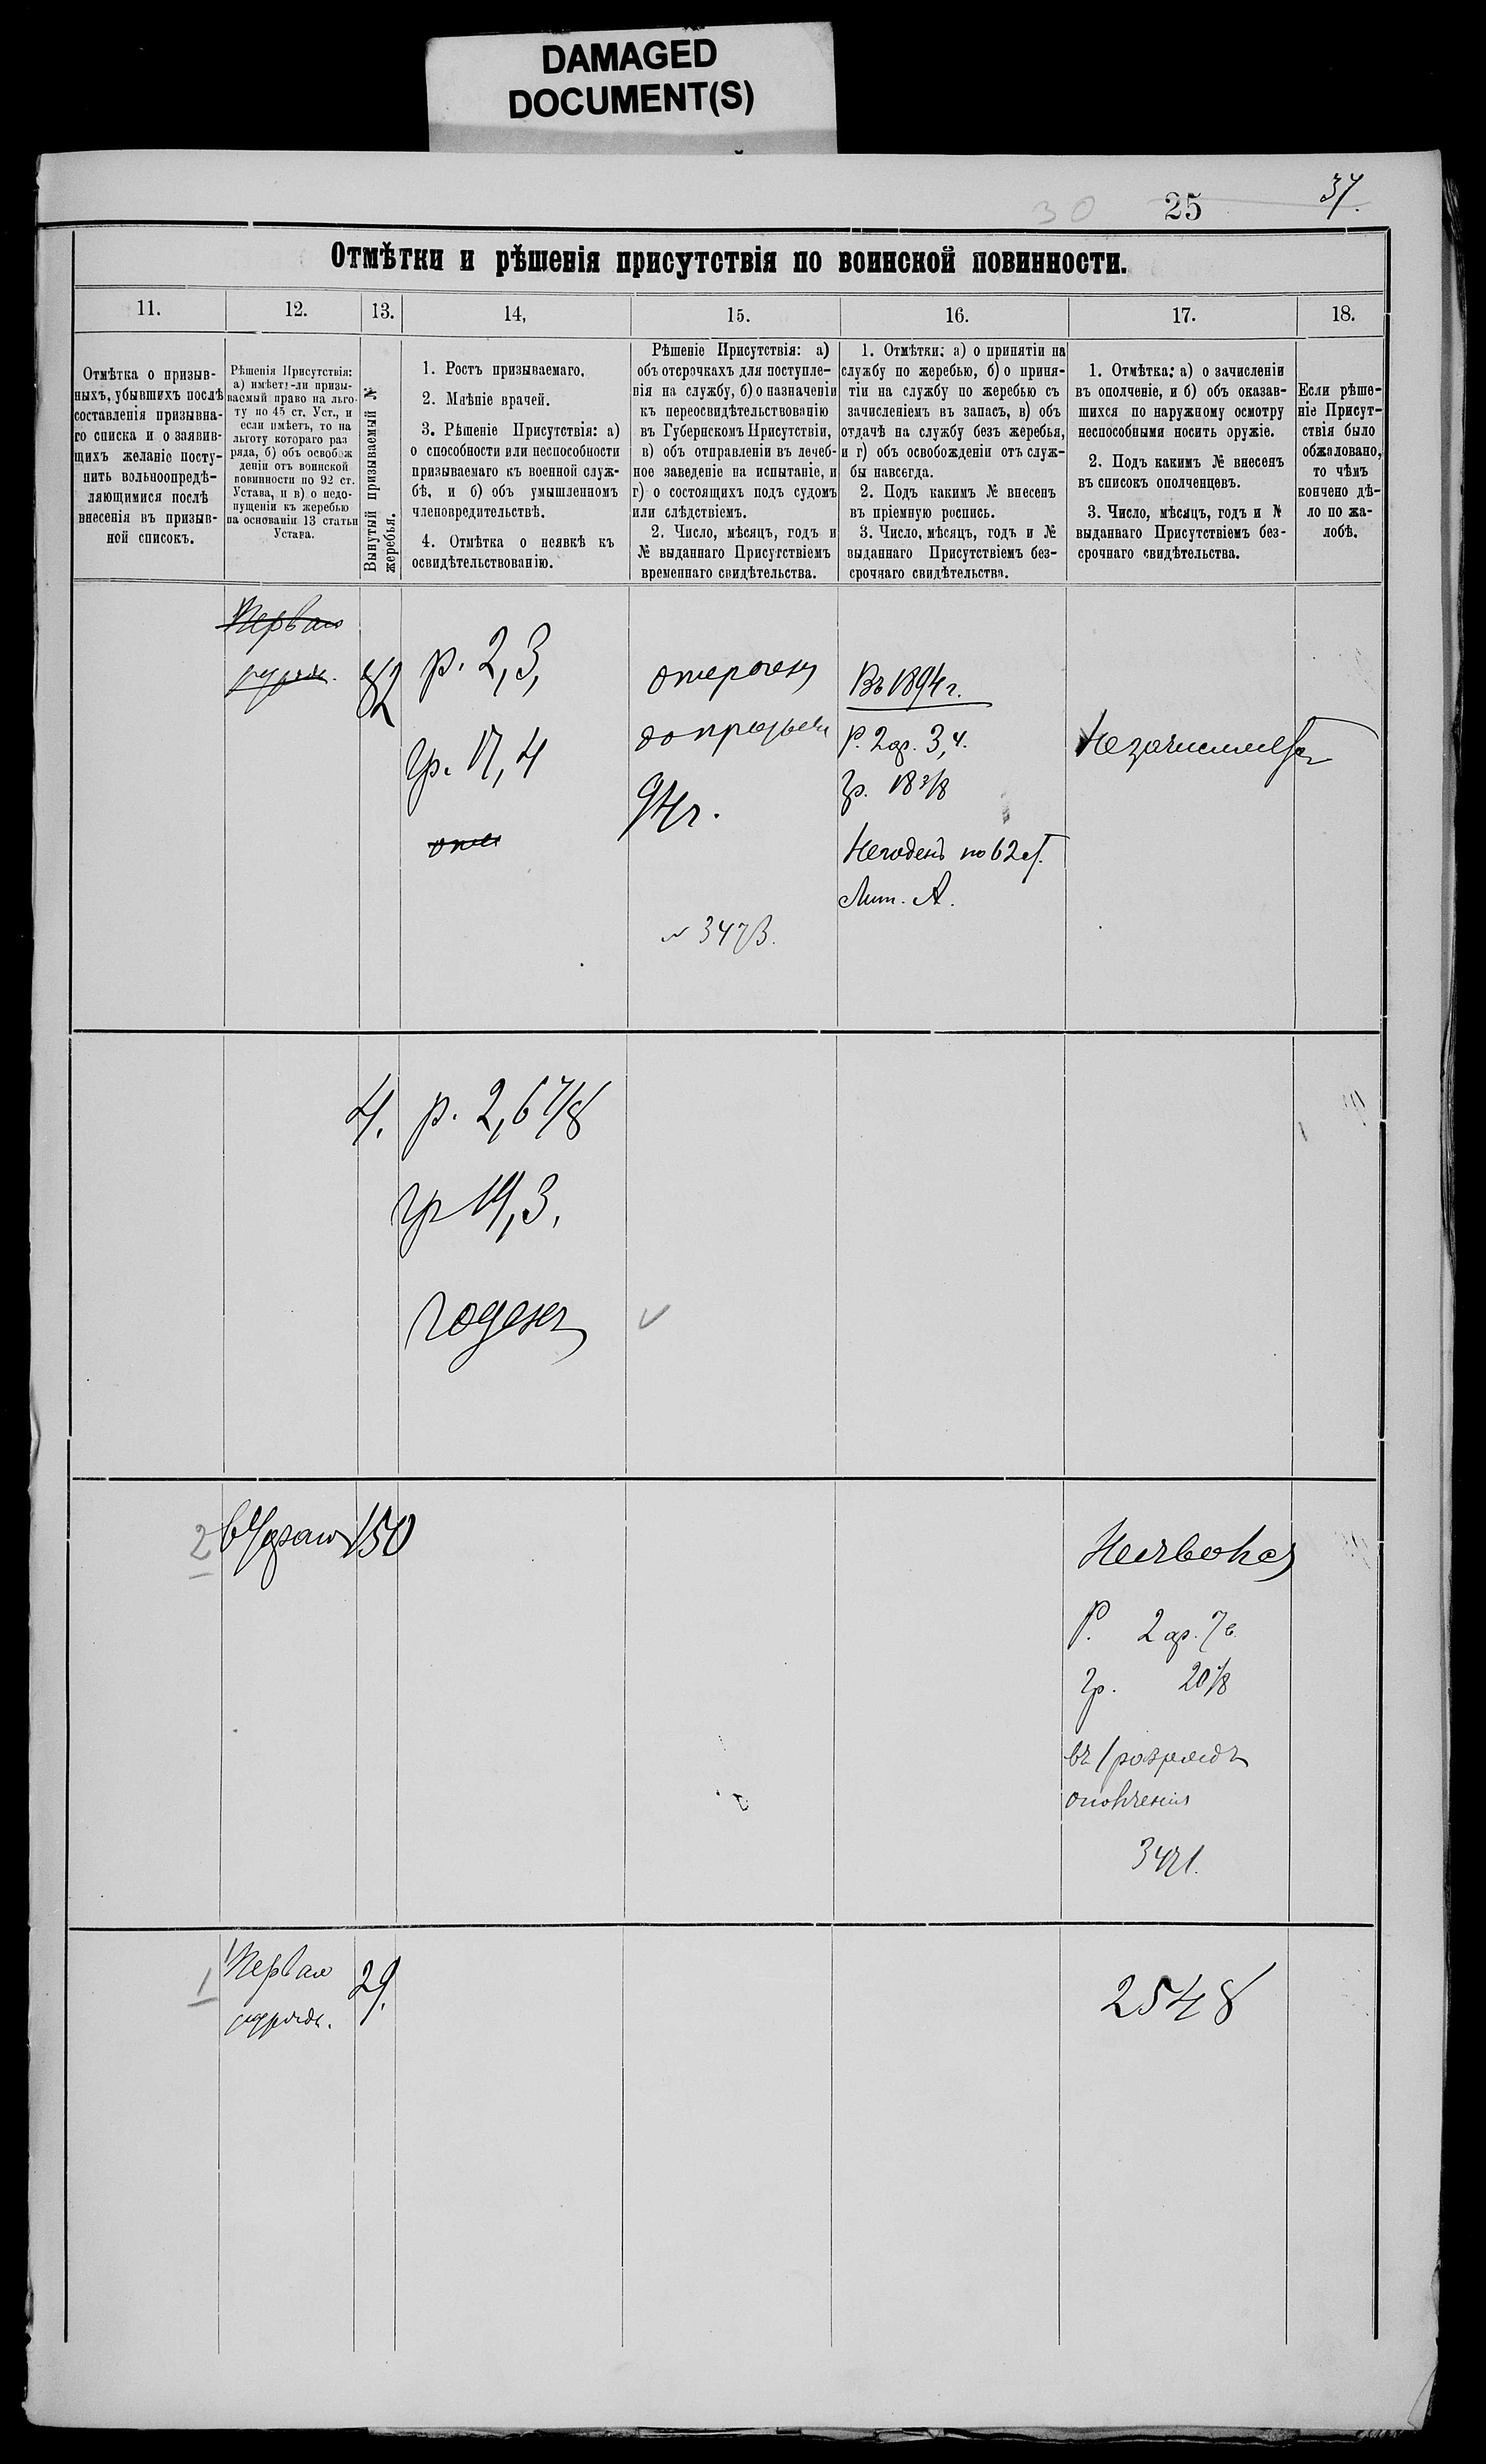 DAMAGED
DOCUMENT(S)
30 25 37.
Отмѣтки и рѣшенія присутствія по воинской повинности.
11. 12. 13. 14, 15. 16. 17. 18.
Отмѣтка о призыв-
ныхъ, убывшихъ послѣ
составленія призывна-
го списка и о заявив-
щихъ желаніе посту-
пить вольноопредѣ-
ляющимися послѣ
внесенія въ призыв-
ной списокъ.
Рѣшенія Присутствія:
а) имѣетъ-ли призы-
ваемый право на льго-
ту по 45 ст. Уст., и
если имѣетъ, то на
льготу котораго раз
ряда, б) объ освобож
деніи отъ воинской
повинности по 92 ст.
Устава, и в) о недо-
пущеніи къ жеребью
на основаніи 13 статьи
Устава.
Вынутый призываемый №
жеребья.
1. Ростъ призываемаго.
2. Мнѣніе врачей.
3. Рѣшеніе Присутствія: а)
о способности или неспособности
призываемаго къ военной служ-
бѣ, и б) объ умышленномъ
членовредительствѣ.
4. Отмѣтка о неявкѣ къ
освидѣтельствованію.
Рѣшеніе Присутствія: а)
объ отсрочкахъ для поступле-
нія на службу, б) о назначеніи
къ переосвидѣтельствованію
въ Губернскомъ Присутствіи,
в) объ отправленіи въ лечеб-
ное заведеніе на испытаніе, и
г) о состоящихъ подъ судомъ
или слѣдствіемъ.
2. Число, мѣсяцъ, годъ и
№ выданнаго Присутствіемъ
временнаго свидѣтельства.
1. Отмѣтки: а) о принятіи на
службу по жеребью, б) о приня-
тіи на службу по жеребью съ
зачисленіемъ въ запасъ, в) объ
отдачѣ на службу безъ жеребья,
и г) объ освобожденіи отъ служ-
бы навсегда.
2. Подъ какимъ № внесенъ
въ пріемную роспись.
3. Число, мѣсяцъ, годъ и №
выданнаго Присутствіемъ без-
срочнаго свидѣтельства.
1. Отмѣтка: а) о зачисленіи
въ ополченіе, и б) объ оказав-
шихся по наружному осмотру
неспособными носить оружіе.
2. Подъ какимъ № внесенъ
въ списокъ ополченцевъ.
3. Число, мѣсяцъ, годъ и №
выданнаго Присутствіемъ без-
срочнаго свидѣтельства.
Если рѣше-
ніе Присут-
ствія было
обжаловано,
то чѣмъ
кончено дѣ-
ло по жа-
лобѣ.
Первая
82
р. 2,3,
гр. 17,4
отсроченъ
до призыва
94 г.
№ 3473.
Въ 1894 г.
Р. 2 ар. 3,4.
Гр. 18 3/8
Негоденъ по 62 ст.
Лит. А.
4.
р. 2,6 7/8
гр 19,3.
годенъ
2
150
Неявился
Р. 2 ар. 7 в.
Гр. 20 1/8
въ 1 разрядъ
ополченія
3471.
1
Первая
29.
2548